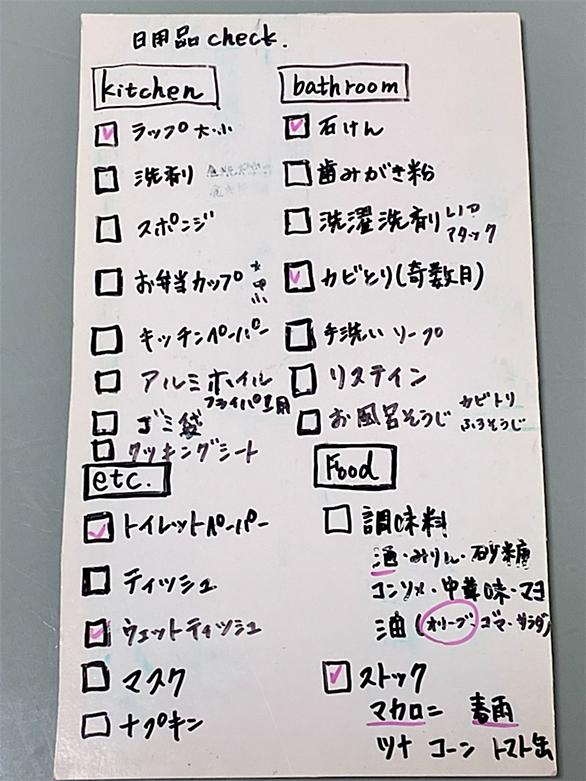 日用品check.
kitchen
ラップ大小
洗剤
スポンジ
お弁当カップ 大中小
キッチンペーパー
アルミホイル
フライパン用
ゴミ袋
クッキングシート
bathroom
石けん
歯みがき粉
洗濯洗剤
アタック
カビとり(奇数月)
手洗いソープ
リステイン
お風呂そうじ カビトリ
ふろそうじ
etc.
トイレットペーパー
ティッシュ
ウェットティッシュ
マスク
ナプキン
Food
調味料
酒・みりん・砂糖
コンソメ・中華味・マヨ
油(オリーブ・ゴマ・サラダ)
ストック
マカロニ 春雨
ツナ コーン トマト缶